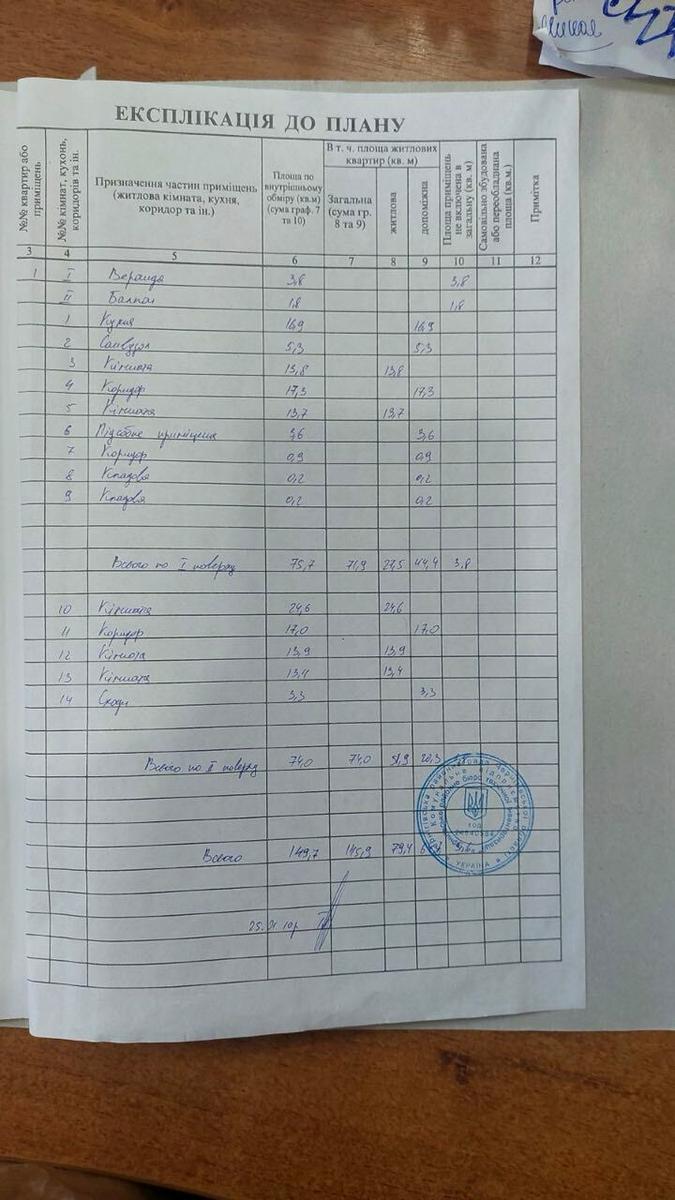 ЕКСПЛІКАЦІЯ ДО ПЛАНУ
№№ квартир або приміщень
№№ кімнат, кухонь, коридорів та ін.
Призначення частин приміщень
(житлова кімната, кухня,
коридор та ін.)
Площа по
внутрішньому
обміру (кв.м)
(сума граф. 7
та 10)
В т. ч. площа житлових
квартир (кв. м)
Загальна
(сума гр.
8 та 9)
житлова
допоміжна
Площа приміщень
не включена в
загальну (кв. м)
Самовільно збудована
або переобладнана
площа (кв.м.)
Примітка
3 4 5 6 7 8 9 10 11 12
1 I Веранда 3,8 3,8
II Балкон 1,8 1,8
1 Кухня 16,9 16,9
2 Санвузол 5,3 5,3
3 Кімната 13,8 13,8
4 Коридор 17,3 17,3
5 Кімната 13,7 13,7
6 Підсобне приміщення 3,6 3,6
7 Коридор 0,9 0,9
8 Кладова 0,2 0,2
9 Кладова 0,2 0,2
Всього по I поверху 75,7 71,9 27,5 44,4 3,8
10 Кімната 24,6 24,6
11 Коридор 17,0 17,0
12 Кімната 13,9 13,9
13 Кімната 13,4 13,4
14 Сходи 3,3 3,3
Всього по II поверху 74,0 74,0 51,9 20,3
Всього 149,7 145,9 79,4
УКРАЇНА